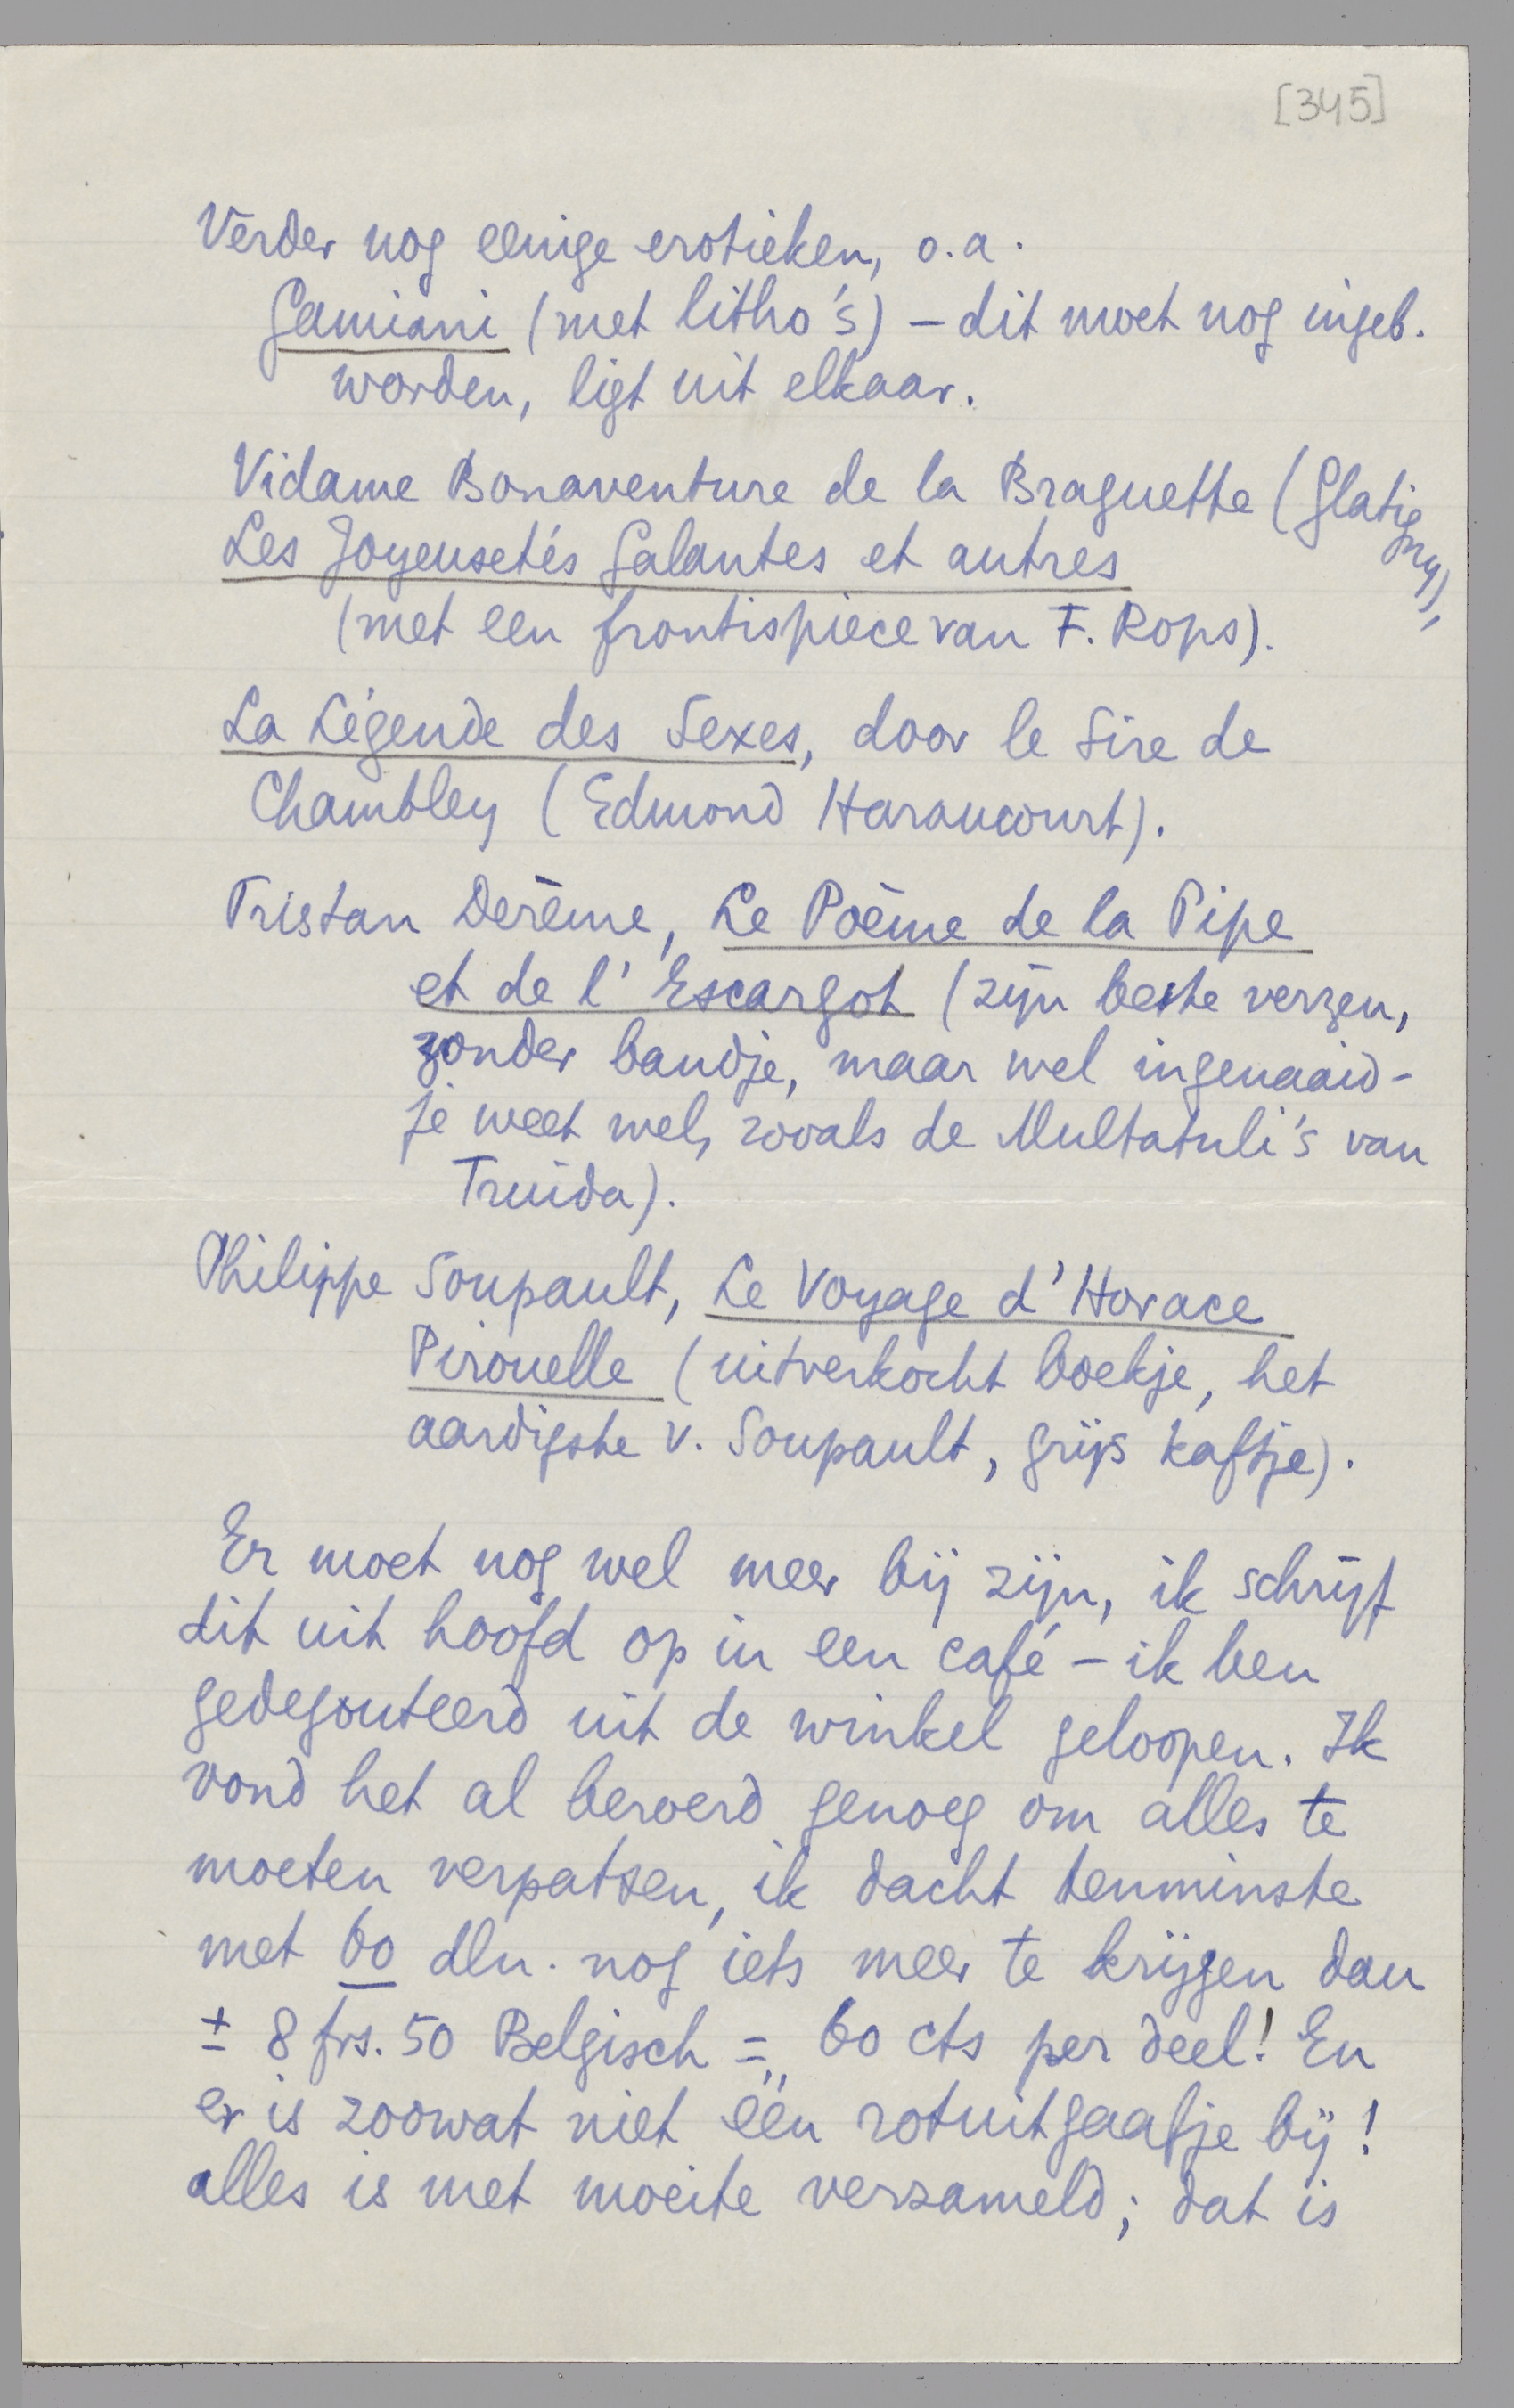 [345]
Verder nog eenige erotieken, o.a.
Gamiani (met litho's) – dit moet nog ingeb.
worden, ligt uit elkaar.
Vidame Bonaventure de la Braguette (Glatigny),
Les Joyeusetés Galantes et autres
(met een frontispiece van F. Rops).
La Légende des Sexes, door le Sire de
Chambley (Edmond Haraucourt).
Tristan Derème, Le Poème de la Pipe
et de l'Escargot (zijn beste verzen,
zonder bandje, maar wel ingenaaid –
je weet wel, zooals de Multatuli's van
Truida).
Philippe Soupault, Le Voyage d'Horace
Pirouelle (uitverkocht boekje, het
aardigste v. Soupault, grijs kaftje).
Er moet nog wel meer bij zijn, ik schrijf
dit uit hoofd op in een café – ik ben
gedegouteerd uit de winkel geloopen. Ik
vond het al beroerd genoeg om alles te
moeten verpatsen, ik dacht tenminste
met 60 dln. nog iets meer te krijgen dan
± 8 frs. 50 Belgisch = 60 cts per deel! En
er is zoowat niet één rotuitgaafje bij!
alles is met moeite verzameld; dat is